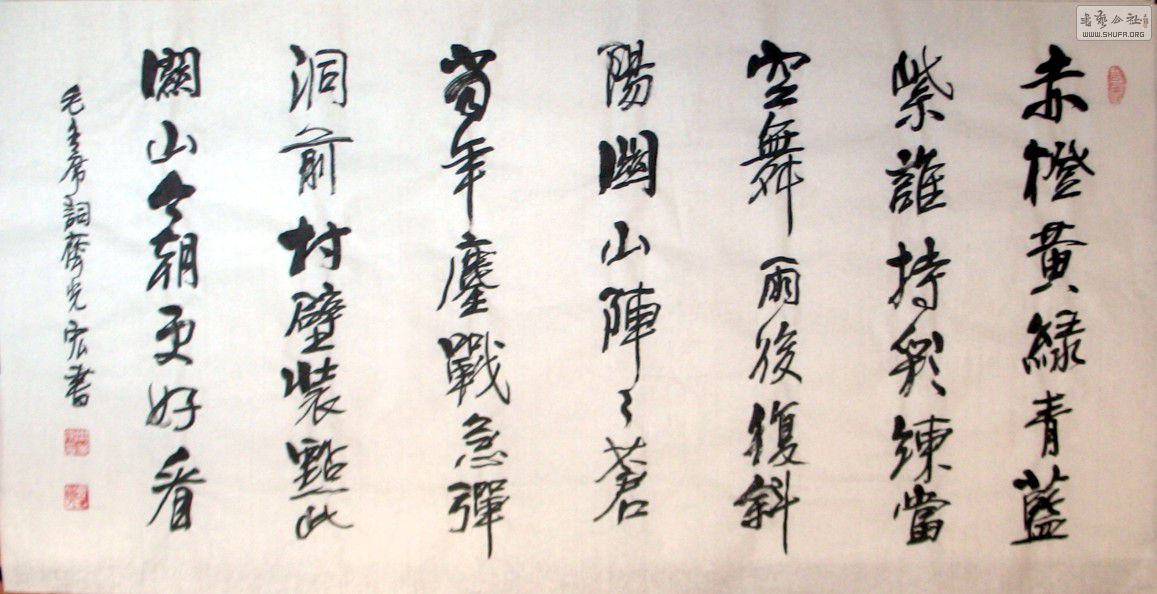 赤橙黃緑青藍
紫誰持彩練當
空舞雨後復斜
陽關山陣々蒼
當年鏖戰急彈
洞前村壁裝點此
關山今朝更好看
毛主席詞齊光宏書
書藝公社
WWW.SHUFA.ORG